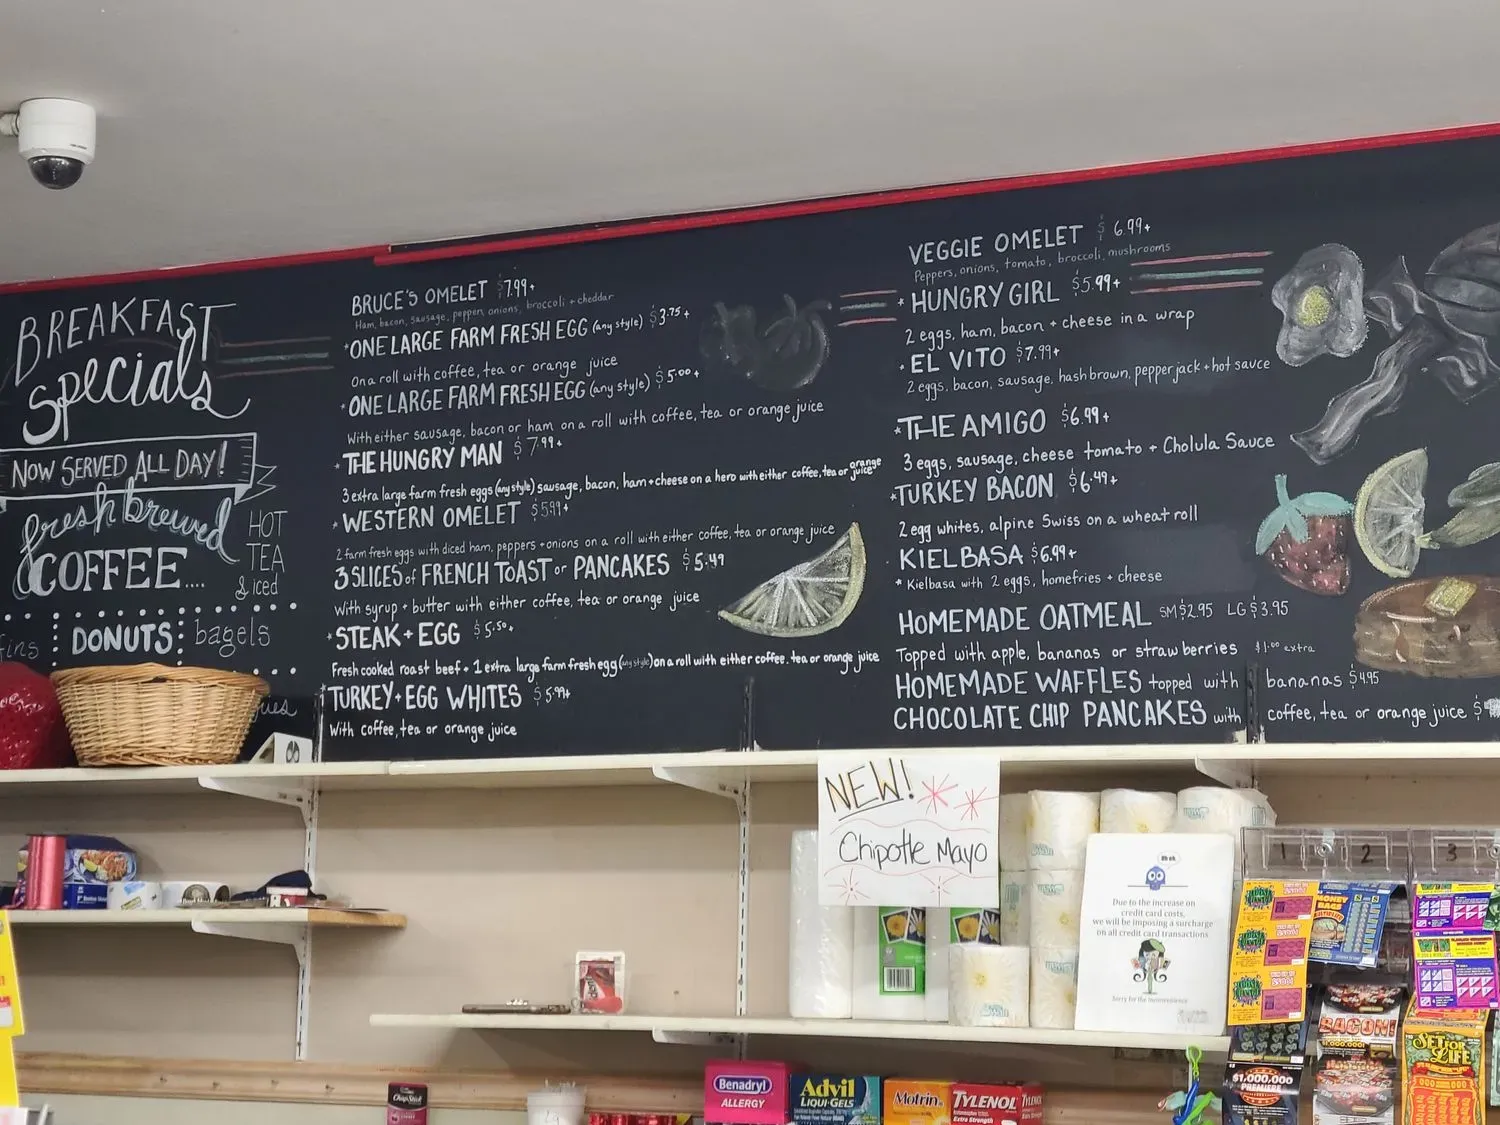 BREAKFAST
specials
NOW SERVED ALL DAY!
fresh brewed
COFFEE....
HOT
TEA
& iced
DONUTS
bagels
BRUCE'S OMELET $7.99+
Ham, bacon, sausage, pepper, onions, broccoli + cheddar
*ONE LARGE FARM FRESH EGG (any style) $3.75+
On a roll with coffee, tea or orange juice
*ONE LARGE FARM FRESH EGG (any style) $5.00+
With either sausage, bacon or ham on a roll with coffee, tea or orange juice
*THE HUNGRY MAN $7.99+
3 extra large farm fresh eggs (any style) sausage, bacon, ham + cheese on a hero with either coffee, tea or orange juice
*WESTERN OMELET $5.99+
2 farm fresh eggs with diced ham, peppers + onions on a roll with either coffee, tea or orange juice
3 SLICES of FRENCH TOAST or PANCAKES $5.49
With syrup + butter with either coffee, tea or orange juice
*STEAK + EGG $5.50+
Fresh cooked roast beef + 1 extra large farm fresh egg (any style) on a roll with either coffee, tea or orange juice
*TURKEY + EGG WHITES $5.99+
With coffee, tea or orange juice
VEGGIE OMELET $6.99+
Peppers, onions, tomato, broccoli, mushrooms
*HUNGRY GIRL $5.99+
2 eggs, ham, bacon + cheese in a wrap
*EL VITO $7.99+
2 eggs, bacon, sausage, hashbrown, pepperjack + hot sauce
*THE AMIGO $6.99+
3 eggs, sausage, cheese tomato + Cholula Sauce
*TURKEY BACON $6.49+
2 egg whites, alpine Swiss on a wheat roll
KIELBASA $6.99+
* Kielbasa with 2 eggs, homefries + cheese
HOMEMADE OATMEAL SM $2.95 LG $3.95
Topped with apple, bananas or strawberries $1.00 extra
HOMEMADE WAFFLES topped with bananas $4.95
CHOCOLATE CHIP PANCAKES with coffee, tea or orange juice $
NEW!
Chipotle Mayo
Uh oh
Due to the increase on
credit card costs,
we will be imposing a surcharge
on all credit card transactions
Sorry for the inconvenience
1
2
3
MONEY
BAGS
WIN
BACON!
SET FOR
LIFE
$1,000,000
PREMIERE
ChapStick
Benadryl
ALLERGY
Advil
LIQUI-GELS
Motrin
TYLENOL
Extra Strength